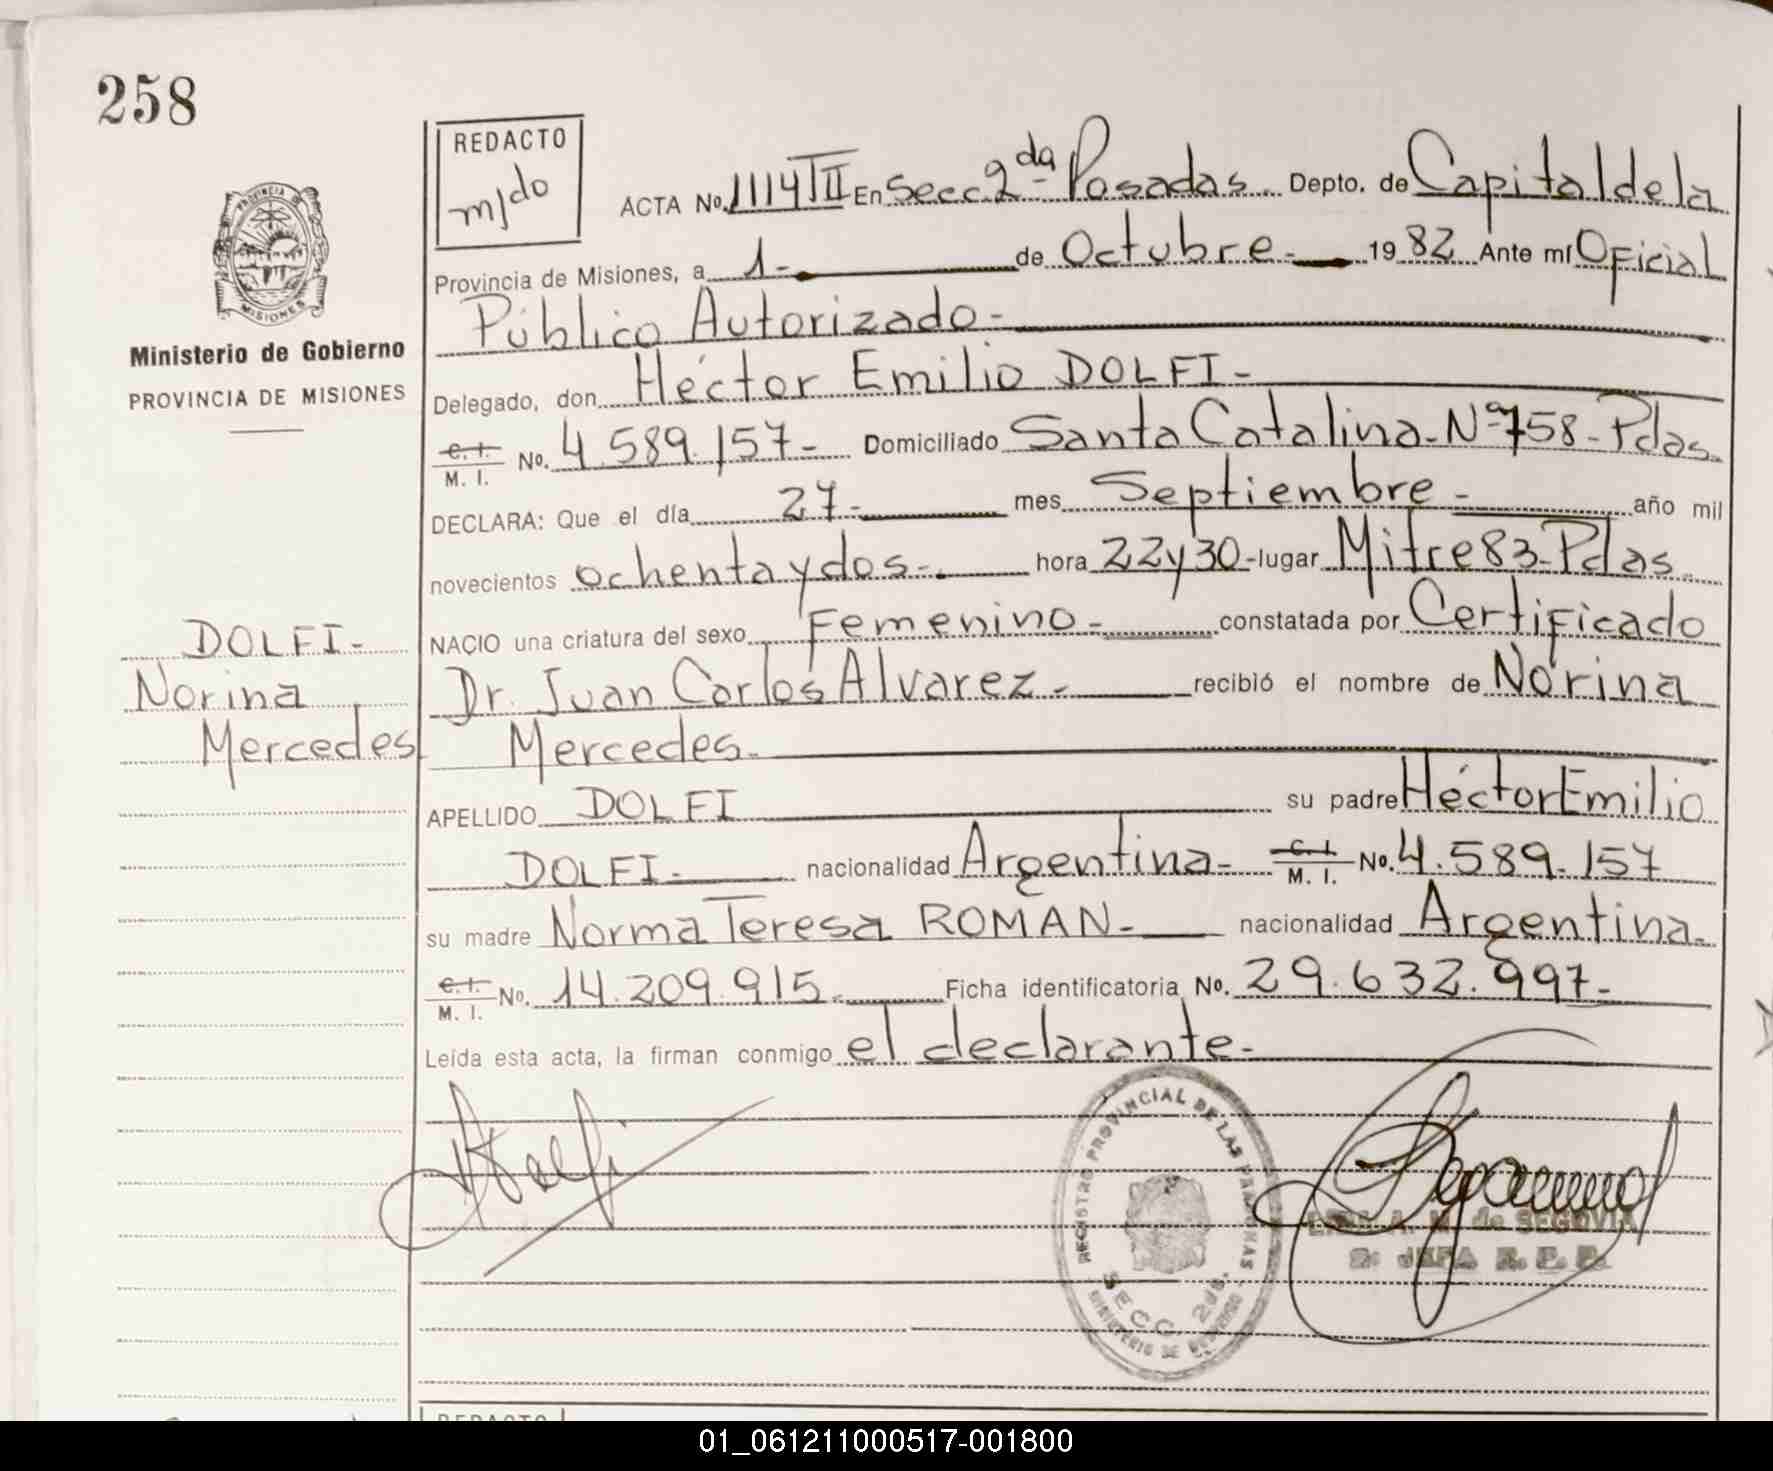 258
REDACTO
m/do
PROVINCIA
MISIONES
Ministerio de Gobierno
PROVINCIA DE MISIONES
ACTA No. 1114 TII En Secc. 2da Posadas Depto. de Capital de la
Provincia de Misiones, a 1- de Octubre- 1982 Ante mí Oficial
Público Autorizado-
Delegado, don Héctor Emilio DOLFI-
C. I.
M. I. No. 4.589.157- Domiciliado Santa Catalina-Nº758-Pdas.
DECLARA: Que el día 27- mes Septiembre- año mil
novecientos ochenta y dos- hora 22y30- lugar Mitre 83-Pdas.
NACIO una criatura del sexo Femenino- constatada por Certificado
DOLFI-
Norina
Mercedes
Dr. Juan Carlos Alvarez- recibió el nombre de Norina
Mercedes-
APELLIDO DOLFI su padre Héctor Emilio
DOLFI- nacionalidad Argentina- C. I.
M. I. No. 4.589.157
su madre Norma Teresa ROMAN- nacionalidad Argentina-
C. I.
M. I. No. 14.209.915- Ficha identificatoria No. 29.632.997-
Leída esta acta, la firman conmigo el declarante-
REGISTRO PROVINCIAL DE LAS PERSONAS
SECC. 2da.
MINISTERIO DE GOBIERNO
A. M. de SEGOVIA
JEFA
REDACTO
01_061211000517-001800